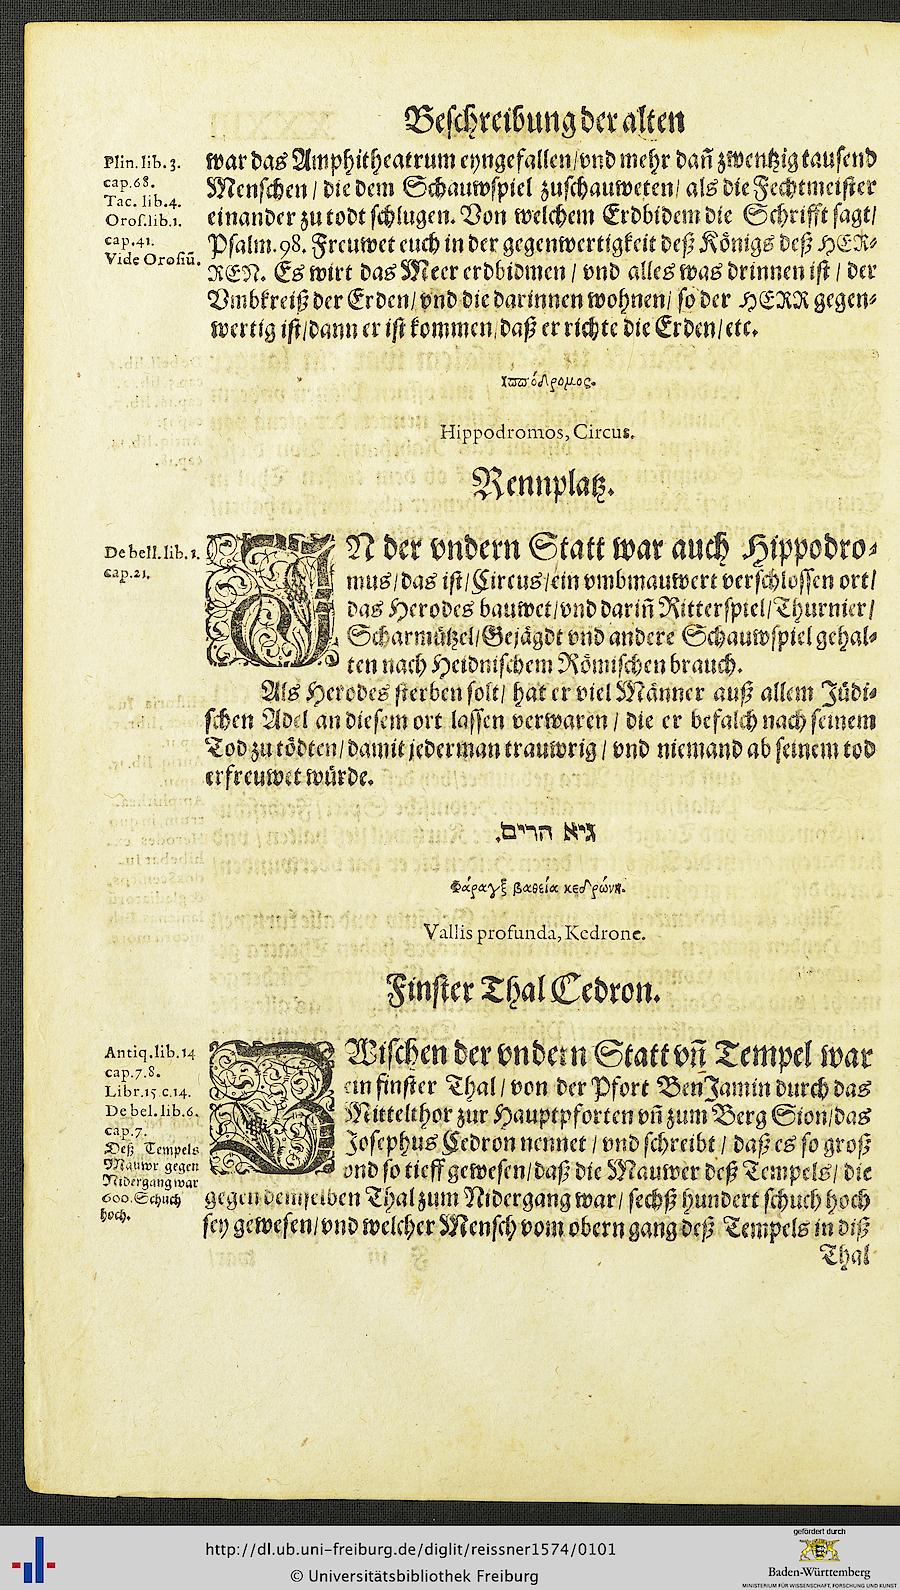 Beschreibung der alten
Plin. lib. 3.
cap. 68.
Tac. lib. 4.
Oros. lib. 1.
cap. 41.
Vide Orosiũ.
war das Amphitheatrum eyngefallen/vnd mehr dañ zwentzig tausend
Menschen / die dem Schauwspiel zuschauweten/ als die Fechtmeister
einander zu todt schlugen. Von welchem Erdbidem die Schrifft sagt/
Psalm. 98. Freuwet euch in der gegenwertigkeit deß Königs deß HER-
REN. Es wirt das Meer erdbidmen / vnd alles was drinnen ist / der
Vmbkreiß der Erden/ vnd die darinnen wohnen/ so der HERR gegen-
wertig ist/dann er ist kommen/daß er richte die Erden/etc.
Ιππόδρομος.
Hippodromos, Circus.
Rennplatz.
De bell. lib. 1.
cap. 21.
IN der vndern Statt war auch Hippodro-
mus/das ist/Circus/ein vmbmauwert verschlossen ort/
das Herodes bauwet/vnd dariñ Ritterspiel/Thurnier/
Scharmützel/Gejägdt vnd andere Schauwspiel gehal-
ten nach Heidnischem Römischen brauch.
Als Herodes sterben solt/ hat er viel Männer auß allem Jüdi-
schen Adel an diesem ort lassen verwaren / die er befalch nach seinem
Tod zu tödten/damit jederman trauwrig / vnd niemand ab seinem tod
erfreuwet würde.
גיא הרים.
Φάραγξ βαθεία κεδρώνȣ.
Vallis profunda, Kedrone.
Finster Thal Cedron.
Antiq. lib. 14
cap. 7. 8.
Libr. 15 c. 14.
De bel. lib. 6.
cap. 7.
Deß Tempels
Mauwr gegen
Nidergang war
600. Schuch
hoch.
ZWischen der vndern Statt vñ Tempel war
ein finster Thal / von der Pfort BenJamin durch das
Mittelthor zur Hauptpforten vñ zum Berg Sion/das
Josephus Cedron nennet / vnd schreibt / daß es so groß
vnd so tieff gewesen/daß die Mauwer deß Tempels/ die
gegen demselben Thal zum Nidergang war/ sechß hundert schuch hoch
sey gewesen/vnd welcher Mensch vom obern gang deß Tempels in diß
Thal
http://dl.ub.uni-freiburg.de/diglit/reissner1574/0101
© Universitätsbibliothek Freiburg
gefördert durch
Baden-Württemberg
MINISTERIUM FÜR WISSENSCHAFT, FORSCHUNG UND KUNST